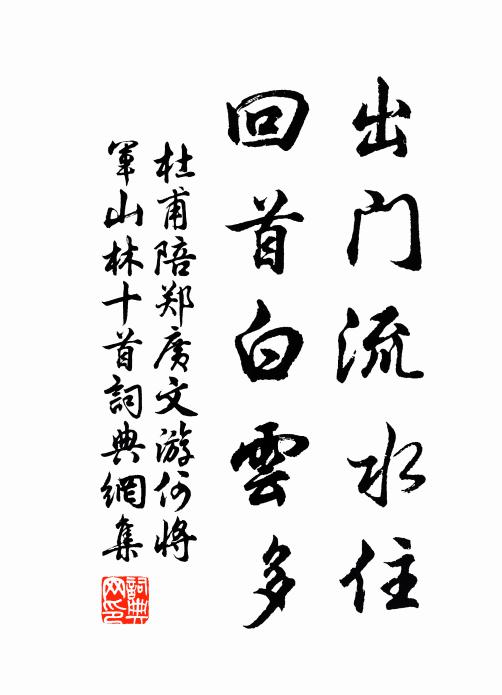 出门流水住
回首白雲多
杜甫陪郑廣文游何將
軍山林十首詞典網集